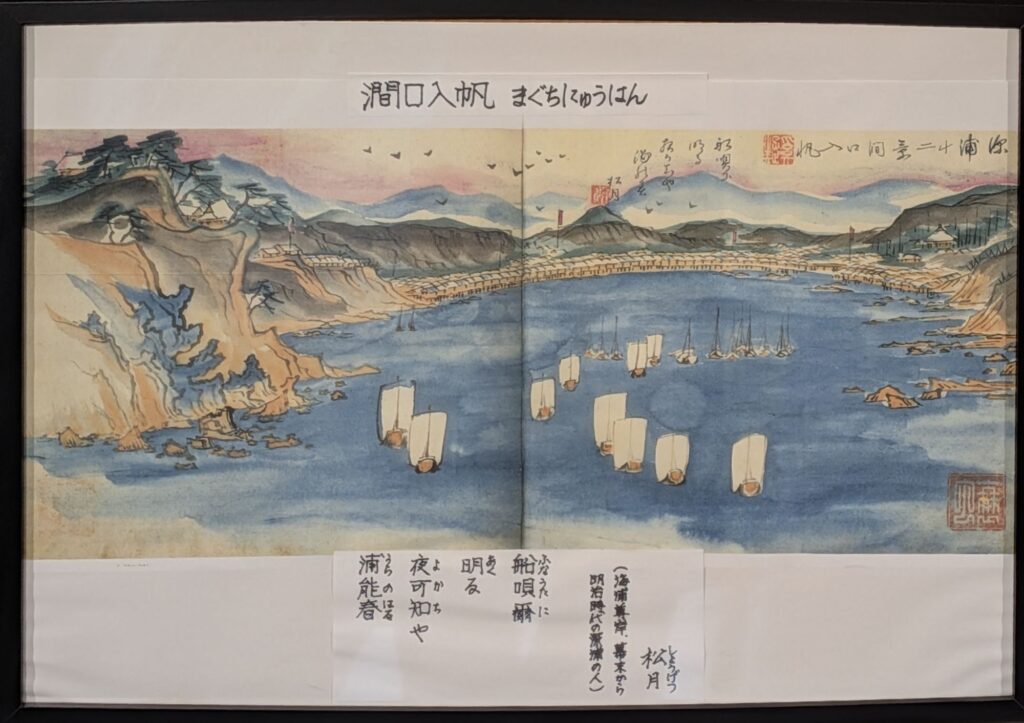 澗口入帆 まぐちにゅうはん
深浦十二景 澗口入帆
松月
しょうげつ
(海浦 岸、幕末から
明治時代の深浦の人)
船唄爾
ふなうたに
明る
あく
夜可知や
よかち
浦能春
うらのはる